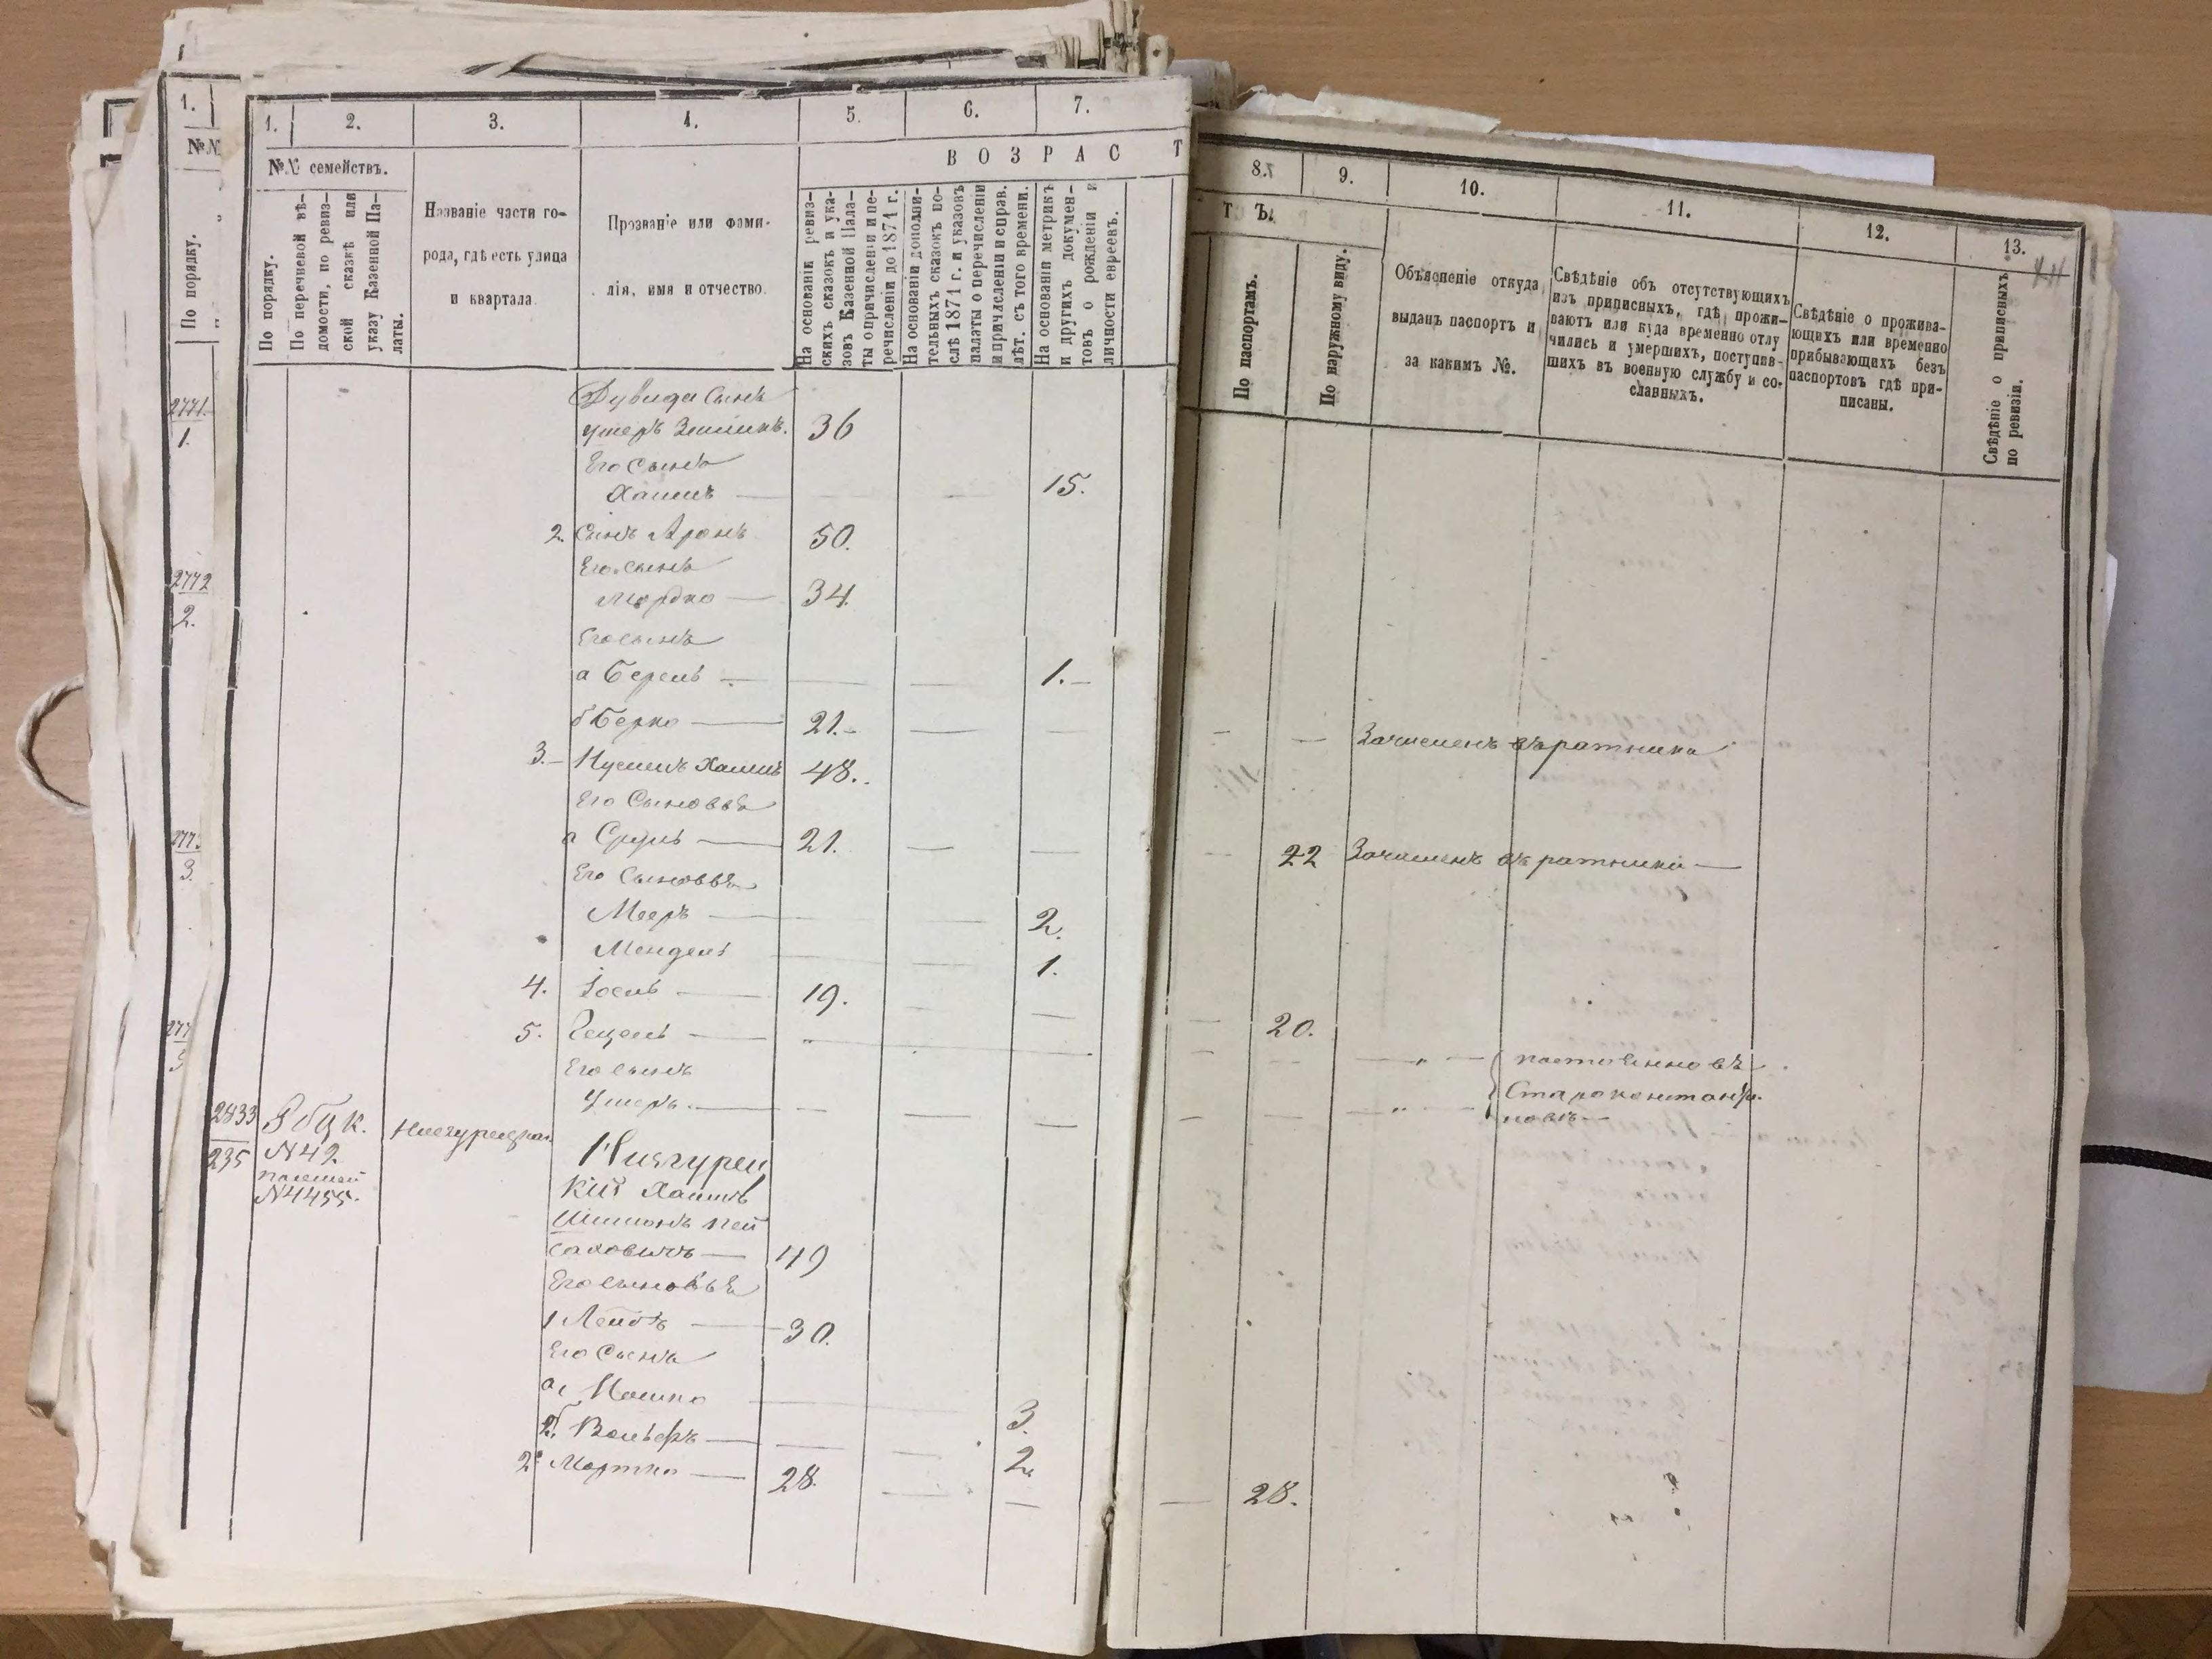 1.
№№
По порядку.
2771
1.
2772
2.
3.
1.
2.
3.
4.
5.
6.
7.
№№ семействъ.
ВОЗРАСТ
По порядку.
По перечневой вѣ-
домости, по ревиз-
ской сказкѣ или
указу Казенной Па-
латы.
Названіе части го-
рода, гдѣ есть улица
и квартала.
Прозваніе или фами-
лія, имя и отчество.
На основаніи ревиз-
скихъ сказокъ и ука-
зовъ Казенной Пала-
ты о причисленіи и пе-
речисленіи до 1871 г.
На основаніи дополни-
тельныхъ сказокъ по-
слѣ 1871 г. и указовъ
палаты о перечисленіи
и причисленіи и справ.
лѣт. съ того времени.
На основаніи метрикъ
и другихъ докумен-
товъ о рожденіи и
личности евреевъ.
Дувида Сынъ
Умеръ 36
Его Сынъ
Хаимъ — 15.
2. Сынъ Аронъ 50.
Его сынъ
Мордко — 34.
Его сынъ
а Берель — 1.
б Берко — 21.
3. Нусинъ Хаимъ 48.
Его Сыновья
а Сруль — 21.
Его Сыновья
Мееръ — 2.
Мендель 1.
4. Іосъ — 19.
5. Гецель —
Его сынъ
Умеръ. —
2833
235
Збцк.
N 42.
N 4455.
Нигурецкая
Нигурец
кій Хаимъ
Шимонъ Пей
саховичъ — 49
Его сыновья
1 Лейбъ — 30.
Его Сынъ
а, Мошко 3.
б Вольфъ — 2.
2. Мортко — 28.
8.
9.
10.
11.
12.
13.
ТЪ.
По паспортамъ.
По наружному виду.
Объясненіе откуда
выданъ паспортъ и
за какимъ №.
Свѣдѣніе объ отсутствующихъ
изъ приписныхъ, гдѣ прожи-
ваютъ или куда временно отлу
чились и умершихъ, поступив-
шихъ въ военную службу и со-
сланныхъ.
Свѣдѣніе о прожива-
ющихъ или временно
прибывающихъ безъ
паспортовъ гдѣ при-
писаны.
Свѣдѣніе о приписныхъ
по ревизіи.
Зачисленъ въ ратники
22 Зачисленъ въ ратники —
20.
постоянно въ
Староконстанти
новѣ —
28.